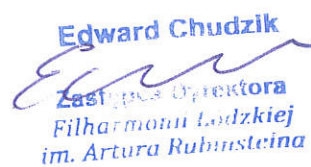 Edward Chudzik
Zastępca Dyrektora
Filharmonii Łódzkiej
im. Artura Rubinsteina